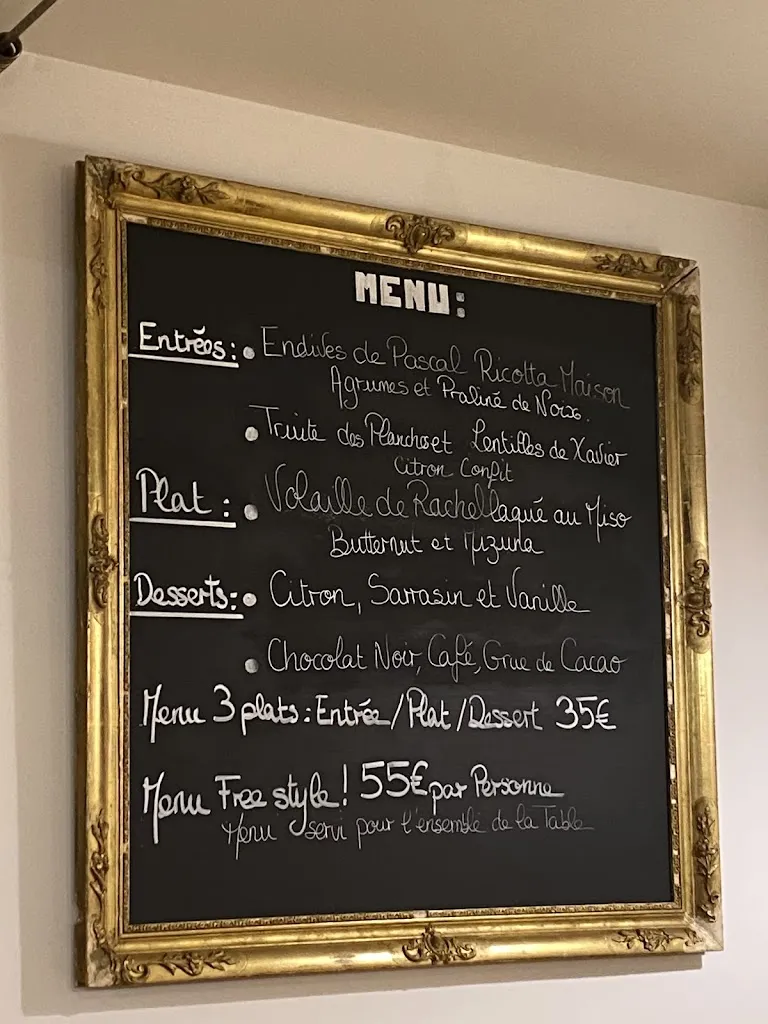 MENU:
Entrées: • Endives de Pascal Ricotta Maison
Agrumes et Praliné de Noix.
• Truite des Planches et Lentilles de Xavier
Citron Confit
Plat: • Volaille de Rachel laqué au Miso
Butternut et Mizuna
Desserts: • Citron, Sarrasin et Vanille
• Chocolat Noir, Café, Grue de Cacao
Menu 3 plats: Entrée/Plat/Dessert 35€
Menu Free style! 55€ par Personne
Menu servi pour l'ensemble de la Table